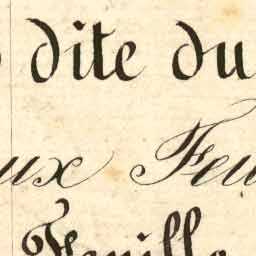 dite du
ux Feu
Feuille